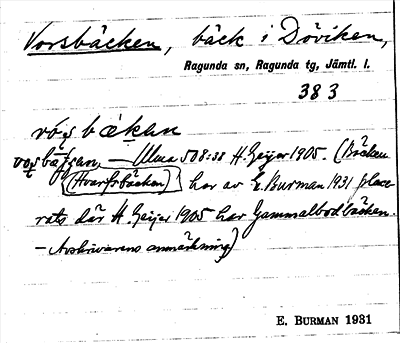 Vorsbäcken, bäck i Döviken,
Ragunda sn, Ragunda tg, Jämtl. l.
383
vo̱ṣbä̀kan — Ulma 508:38 H. Geijer 1905. (Bäcken
(Hvarfsbäcken) har av E. Burman 1931 place-
rats där H. Geijer 1905 har Gammalbodbäcken.
- Avskrivarens anmärkning)
E. BURMAN 1931